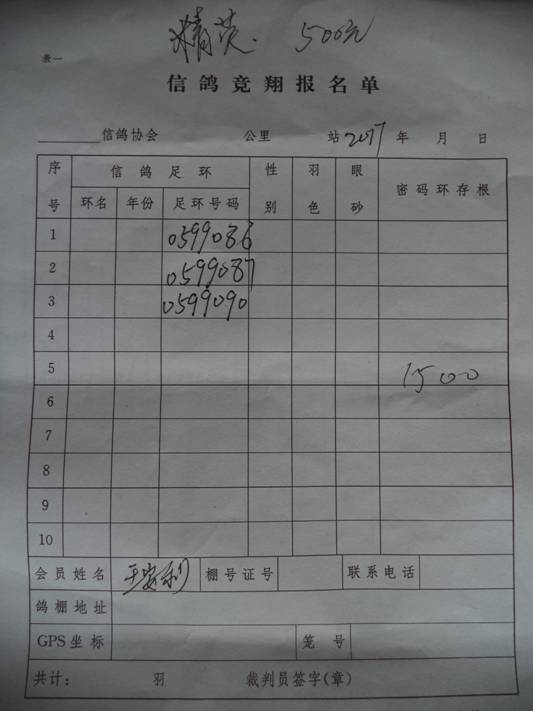 精英. 500元
表一
信鸽竞翔报名单
信鸽协会 公里 站2017年 月 日
序号 信鸽足环 性别 羽色 眼砂 密码环存根
环名 年份 足环号码
1 0599086
2 0599087
3 0599090
4
5 1500
6
7
8
9
10
会员姓名 平安利 棚号证号 联系电话
鸽棚地址
GPS坐标 笼号
共计: 羽 裁判员签字(章)